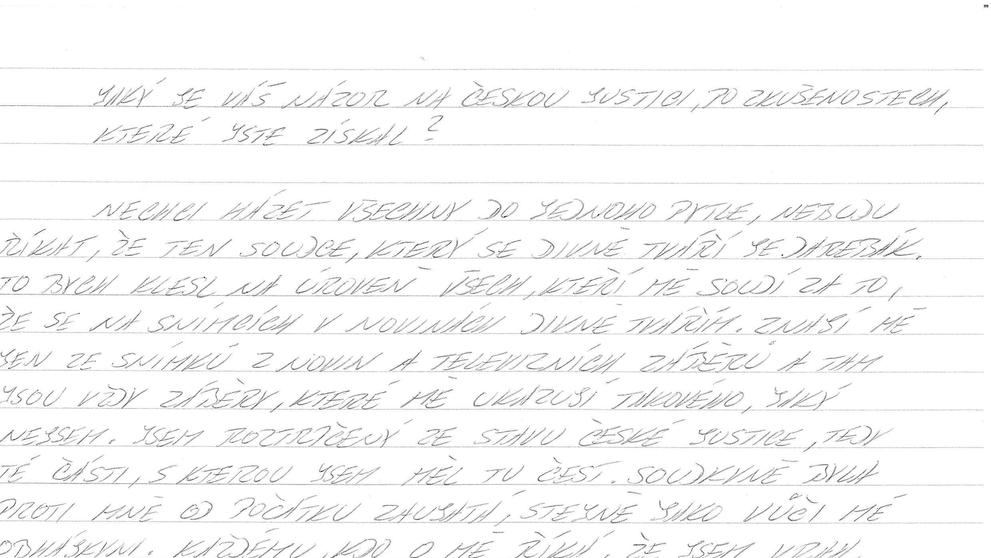 JAKÝ JE VÁŠ NÁZOR NA ČESKOU JUSTICI, PO ZKUŠENOSTECH,
KTERÉ JSTE ZÍSKAL?
NECHCI HÁZET VŠECHNY DO JEDNOHO PYTLE, NEBUDU
ŘÍKAT, ŽE TEN SOUDCE, KTERÝ SE DIVNĚ TVÁŘÍ JE DAREBÁK.
TO BYCH KLESL NA ÚROVEŇ VŠECH, KTEŘÍ MĚ SOUDÍ ZA TO,
ŽE SE NA SNÍMCÍCH V NOVINÁCH DIVNĚ TVÁŘÍM. ZNAJÍ MĚ
JEN ZE SNÍMKŮ Z NOVIN A TELEVIZNÍCH ZÁBĚRŮ A TAM
JSOU VŽDY ZÁBĚRY, KTERÉ MĚ UKAZUJÍ TAKOVÉHO, JAKÝ
NEJSEM. JSEM ROZTRPČENÝ ZE STAVU ČESKÉ JUSTICE, TEDY
TÉ ČÁSTI, S KTEROU JSEM MĚL TU ČEST. SOUDKYNĚ BYLA
PROTI MNĚ OD POČÁTKU ZAUJATÁ, STEJNĚ JAKO VŮČI MÉ
OBHÁJKYNI. KAŽDÉMU, KDO O MĚ ŘÍKÁ, ŽE JSEM VRAH,